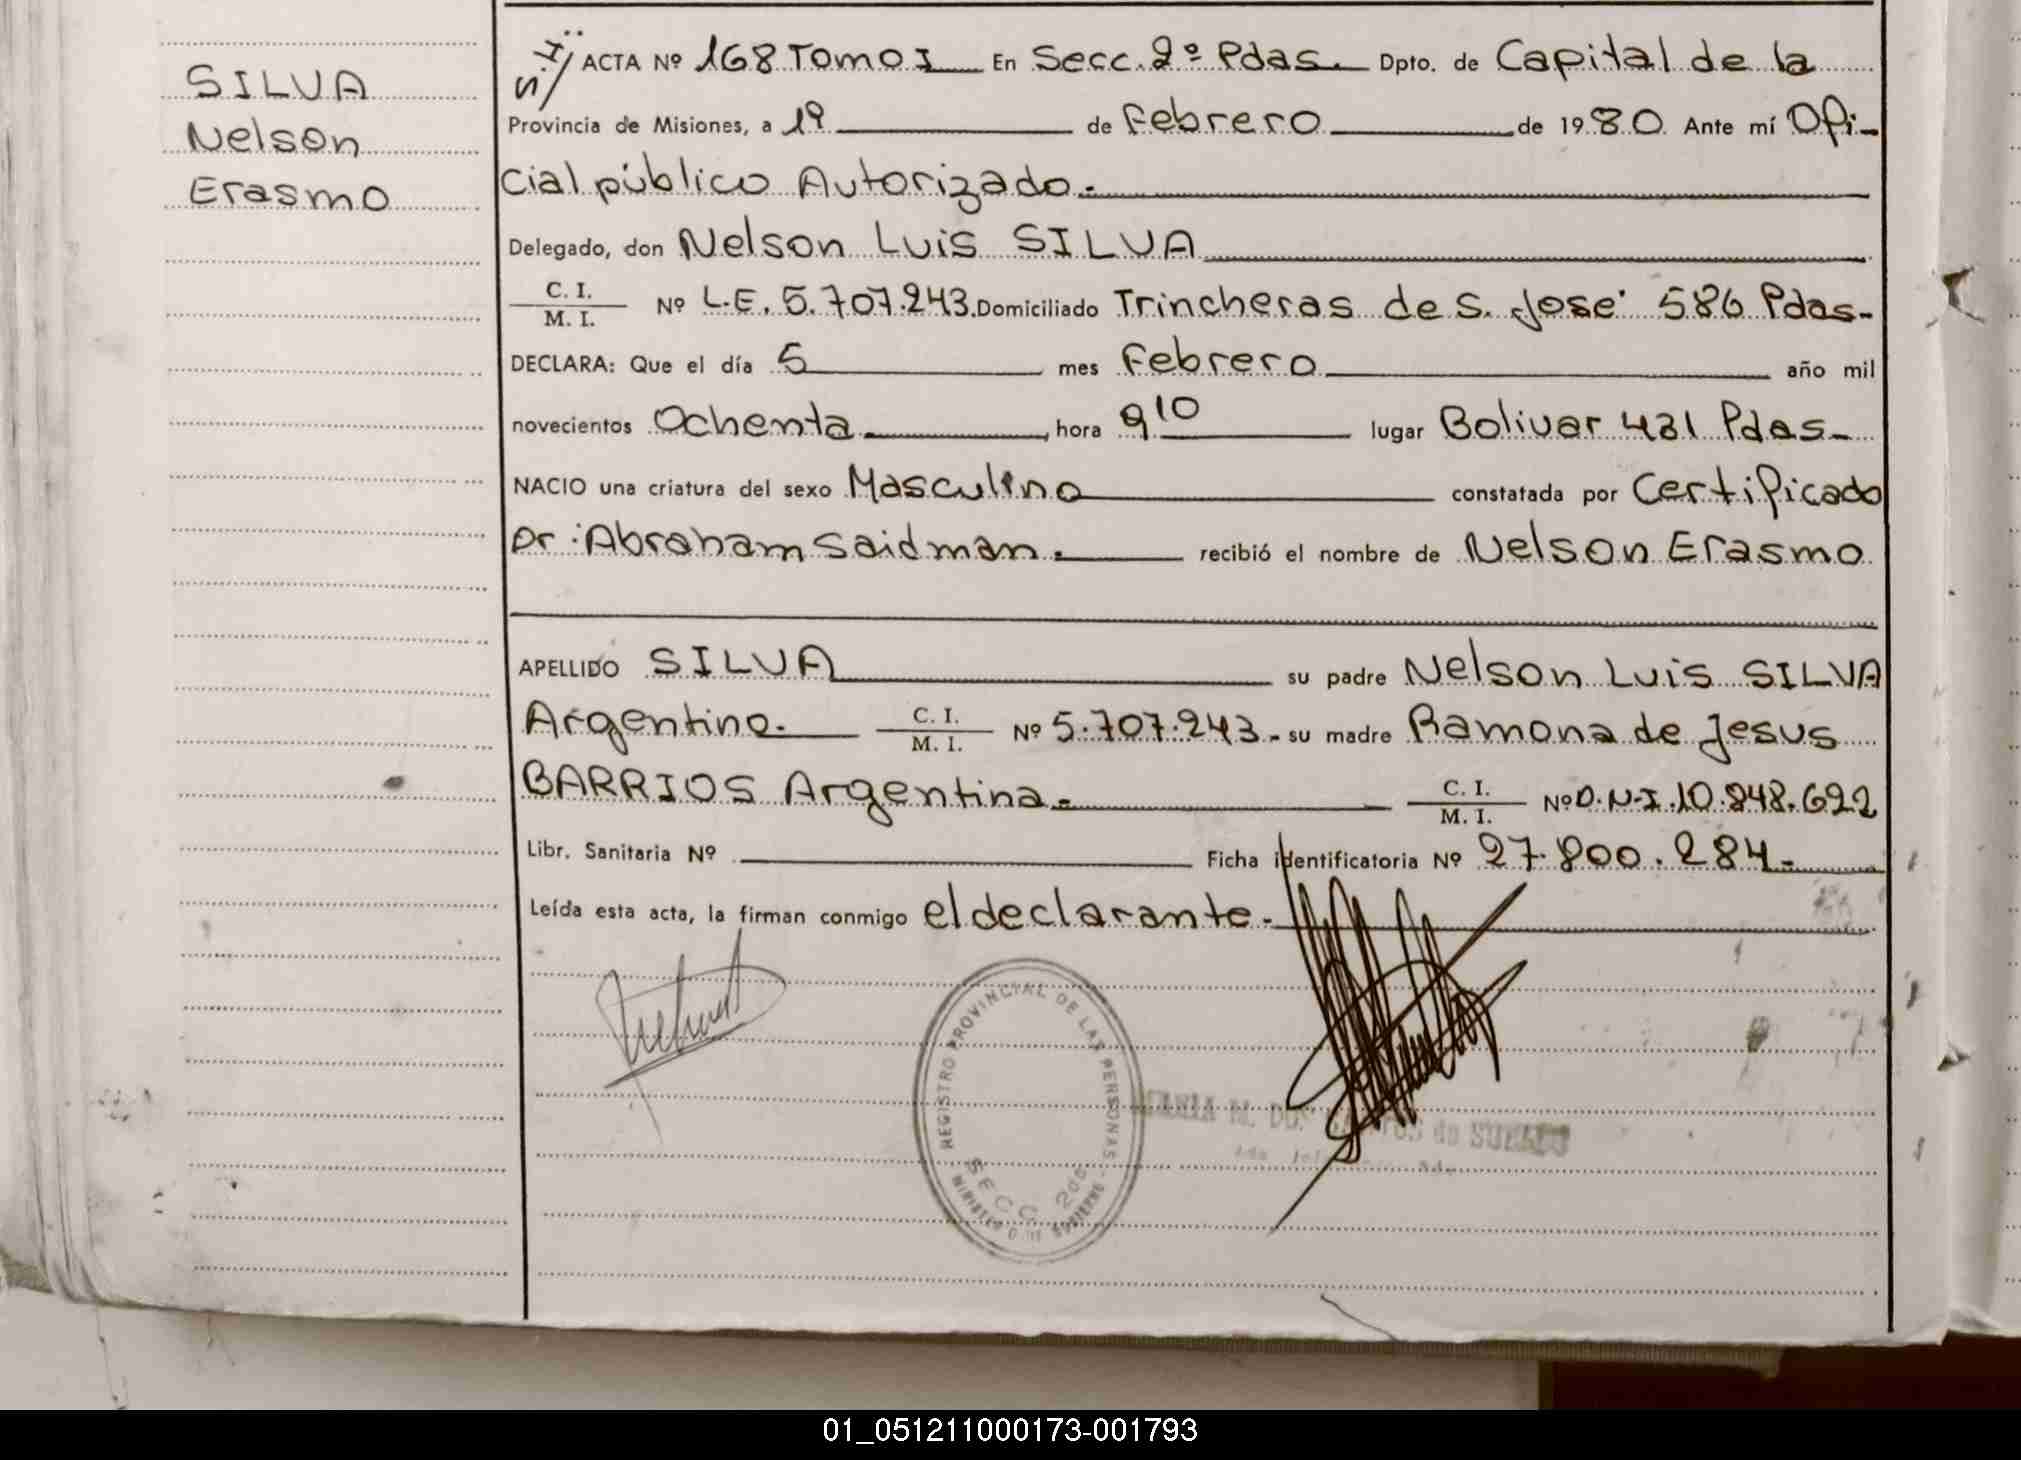 SILVA
Nelson
Erasmo
S.I./ ACTA Nº 168 Tomo I En Secc. 2º Pdas. Dpto. de Capital de la
Provincia de Misiones, a 19 de Febrero de 1980 Ante mí Ofi-
cial público Autorizado.-
Delegado, don Nelson Luis SILVA
C. I.
M. I. Nº L.E. 5.707.243. Domiciliado Trincheras de S. José 586 Pdas-
DECLARA: Que el día 5 mes Febrero año mil
novecientos Ochenta, hora 9 10 lugar Bolivar 431 Pdas-
NACIO una criatura del sexo Masculino constatada por Certificado
Dr: Abraham Saidman.- recibió el nombre de Nelson Erasmo
APELLIDO SILVA su padre Nelson Luis SILVA
Argentino.- C. I.
M. I. Nº 5.707.243.- su madre Ramona de Jesus
BARRIOS Argentina.- C. I.
M. I. Nº D.N.I. 10.848.622
Libr. Sanitaria Nº Ficha identificatoria Nº 27.800.284.-
Leída esta acta, la firman conmigo el declarante.-
REGISTRO PROVINCIAL DE LAS PERSONAS
SECC. 205
MINISTERIO DE GOBIERNO
MARIA M. DOS SANTOS de
01_051211000173-001793